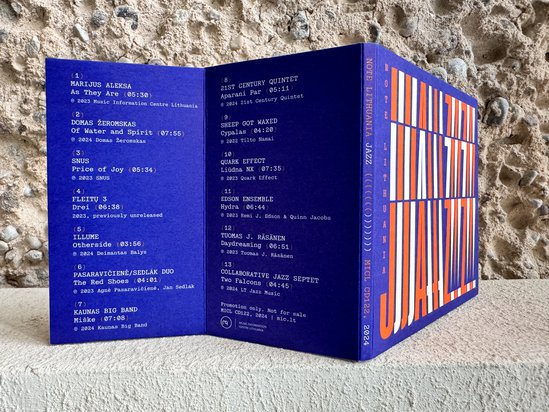 (1)
MARIJUS ALEKSA
As They Are (05:30)
© 2023 Music Information Centre Lithuania
(2)
DOMAS ŽEROMSKAS
Of Water and Spirit (07:55)
© 2024 Domas Žeromskas
(3)
SNUS
Price of Joy (05:34)
© 2023 SNUS
(4)
FLEITŲ 3
Drei (06:38)
2023, previously unreleased
(5)
ILLUME
Otherside (03:56)
© 2024 Deimantas Balys
(6)
PASARAVIČIENĖ/SEDLÁK DUO
The Red Shoes (04:01)
© 2023 Agnė Pasaravičienė, Jan Sedlak
(7)
KAUNAS BIG BAND
Miške (07:08)
© 2024 Kaunas Big Band
(8)
21ST CENTURY QUINTET
Aparani Par (05:11)
© 2024 21st Century Quintet
(9)
SHEEP GOT WAXED
Cypalas (04:20)
© 2022 Tilto Namai
(10)
QUARK EFFECT
Liūdna NX (07:35)
© 2023 Quark Effect
(11)
EDSON ENSEMBLE
Hydra (06:44)
© 2023 Remi J. Edson & Quinn Jacobs
(12)
TUOMAS J. RÄSÄNEN
Daydreaming (06:51)
© 2023 Tuomas J. Räsänen
(13)
COLLABORATIVE JAZZ SEPTET
Two Falcons (04:45)
© 2024 LT Jazz Music
Promotion only. Not for sale
MICL CD122, 2024 | mic.lt
MUSIC INFORMATION
CENTRE LITHUANIA
NOTE LITHUANIA JAZZ ((((((()))))))  MICL CD122, 2024
NOTE LITHUANIA